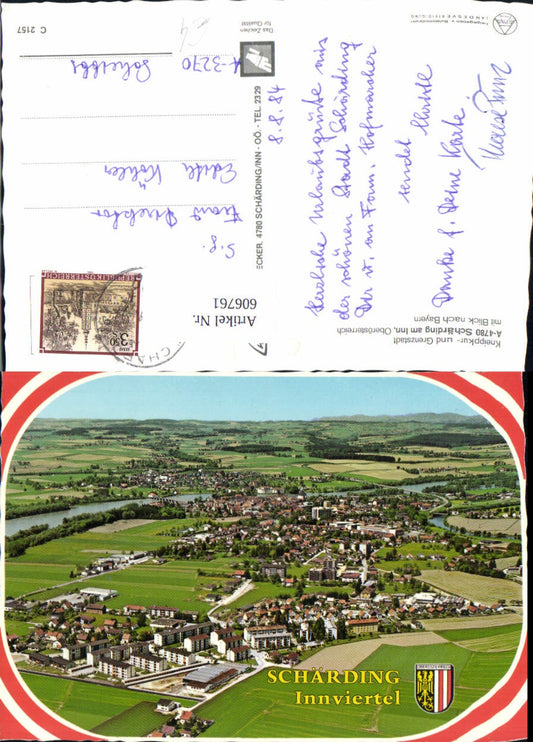 Kneippkur- und Grenzstadt
A-4780 Schärding am Inn, Oberösterreich
mit Blick nach Bayern
8.8.84
Herzliche Urlaubsgrüße aus
der schönen Stadt Schärding
Dir u. an Fam. Hofmarcher
sendet
Danke f. Deine Karte
S.g.
Frau Direktor
Edith
A-3270
Scheibbs
Das Zeichen
für Qualität
C 2157
ECKER, 4780 SCHÄRDING/INN - OÖ. - TEL. 2329
REPUBLIK ÖSTERREICH
3.50
Artikel Nr.
606761
SCHÄRDING
Innviertel